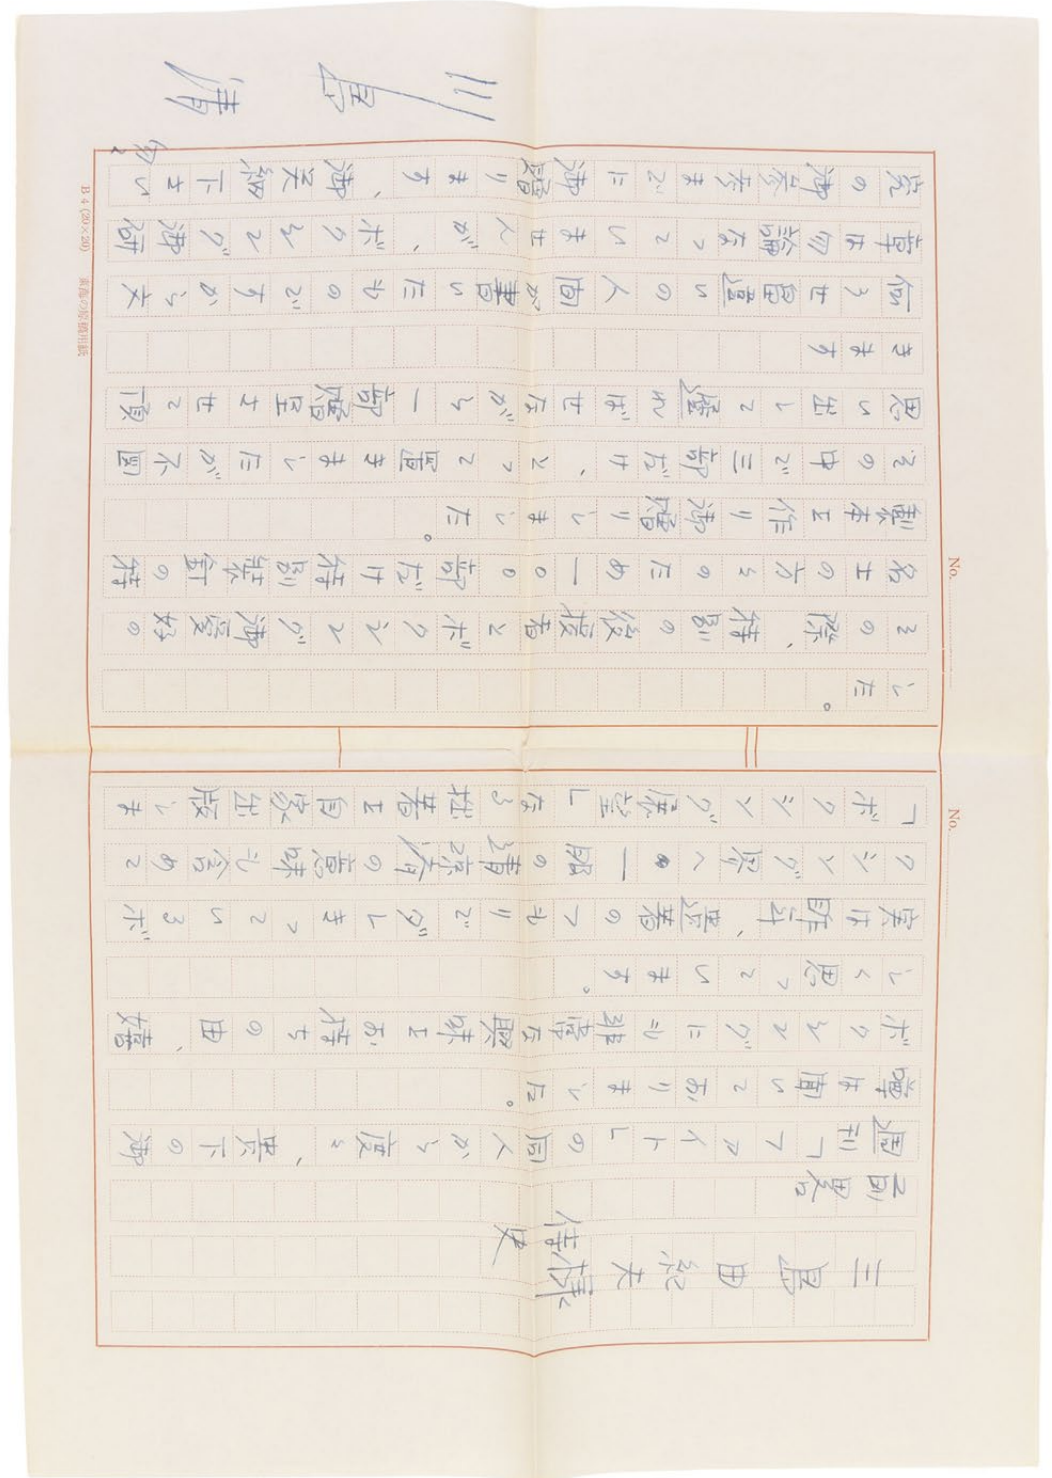 三島由紀夫様
侍史
前略
週刊「ファイト」の同人から度々、貴下の御
噂は聞いておりました。
ボクシングにも非常な興味をお持ちの由、嬉
しく思っています。
実は昨、悪著のつもりでダレきっているボ
クシング界への一服の清涼剤の意味も含めて
「ボクシング展望」なる拙著を自家出版しま
した。
その際、特別の後援者とボクシング御愛好の
名士の方々のため一〇〇部だけ特別装釘の特
製本を作り御贈りしました。
その中で三部だけ、とって置きましたが不図
思い出して遅ればせながら一部贈呈させて頂
きます
何ろせ畠違いの人間が書いたものですから文
章は勿論なっていませんが、ボクシング御研
究の御参考までに御贈ります、御笑納下さい
匆々
川島清
No.
No.
B4(20×20)